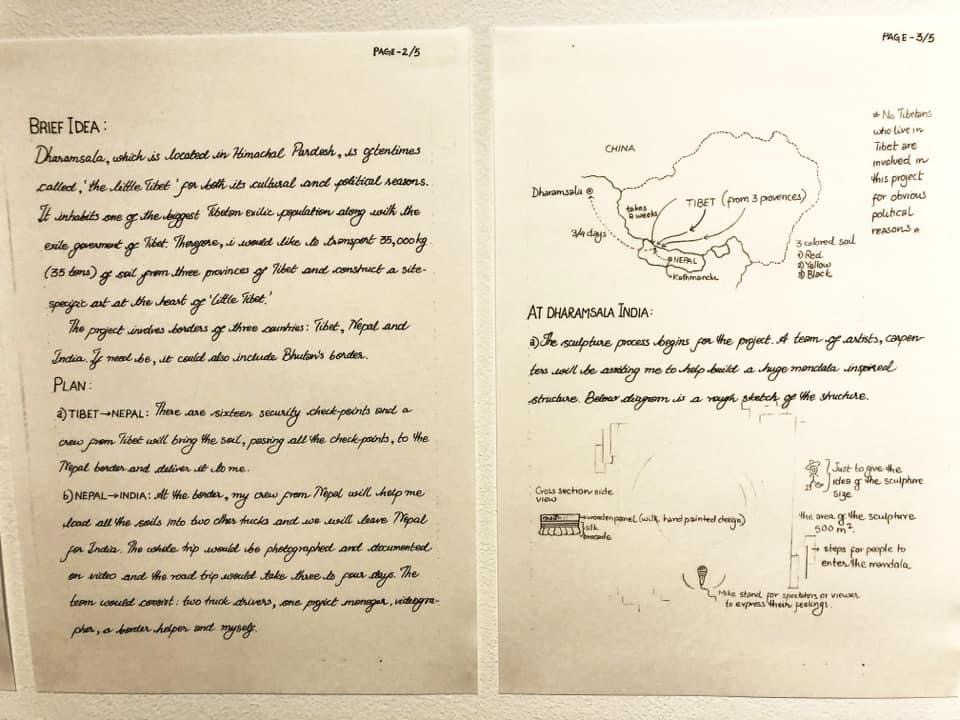 PAGE-2/5
BRIEF IDEA:
Dharamsala, which is located in Himachal Pardesh, is oftentimes
called, 'the little Tibet' for both its cultural and political reasons.
It inhabits one of the biggest Tibetan exilic population along with the
exile goverment of Tibet. Therefore, i would like to transport 35,000kg
(35 tons) of soil from three provinces of Tibet and construct a site-
specific art at the heart of 'little Tibet.'
The project involves borders of three countries: Tibet, Nepal and
India. If need be, it could also include Bhutan's border.
PLAN:
a) TIBET→NEPAL: There are sixteen security check-points and a
crew from Tibet will bring the soil, passing all the check-points, to the
Nepal border and deliver it to me.
b) NEPAL→INDIA: At the border, my crew from Nepal will help me
load all the soils into two other trucks and we will leave Nepal
for India. The whole trip would be photographed and documented
on video and the road trip would take three to four days. The
team would consist: two truck drivers, one project manager, videogra-
pher, a border helper and myself.
PAGE-3/5
* No Tibetans
who live in
Tibet are
involved in
this project
for obvious
political
reasons *
CHINA
Dharamsala
takes
2 weeks
TIBET (from 3 provences)
3/4 days
NEPAL
Kathmandu
3 colored soil
1) Red
2) Yellow
3) Black
AT DHARAMSALA INDIA:
a) The sculpture process begins for the project. A team of artists, carpen-
ters will be assisting me to help build a huge mandala inspired
structure. Below diagram is a rough sketch of the structure.
Just to give the
idea of the sculpture
size
Cross section side
view
wooden panel (with hand painted design)
silk
brocade
the area of the sculpture
500 m².
steps for people to
enter the mandala
Mike stand for spectators or viewer
to express their feelings.